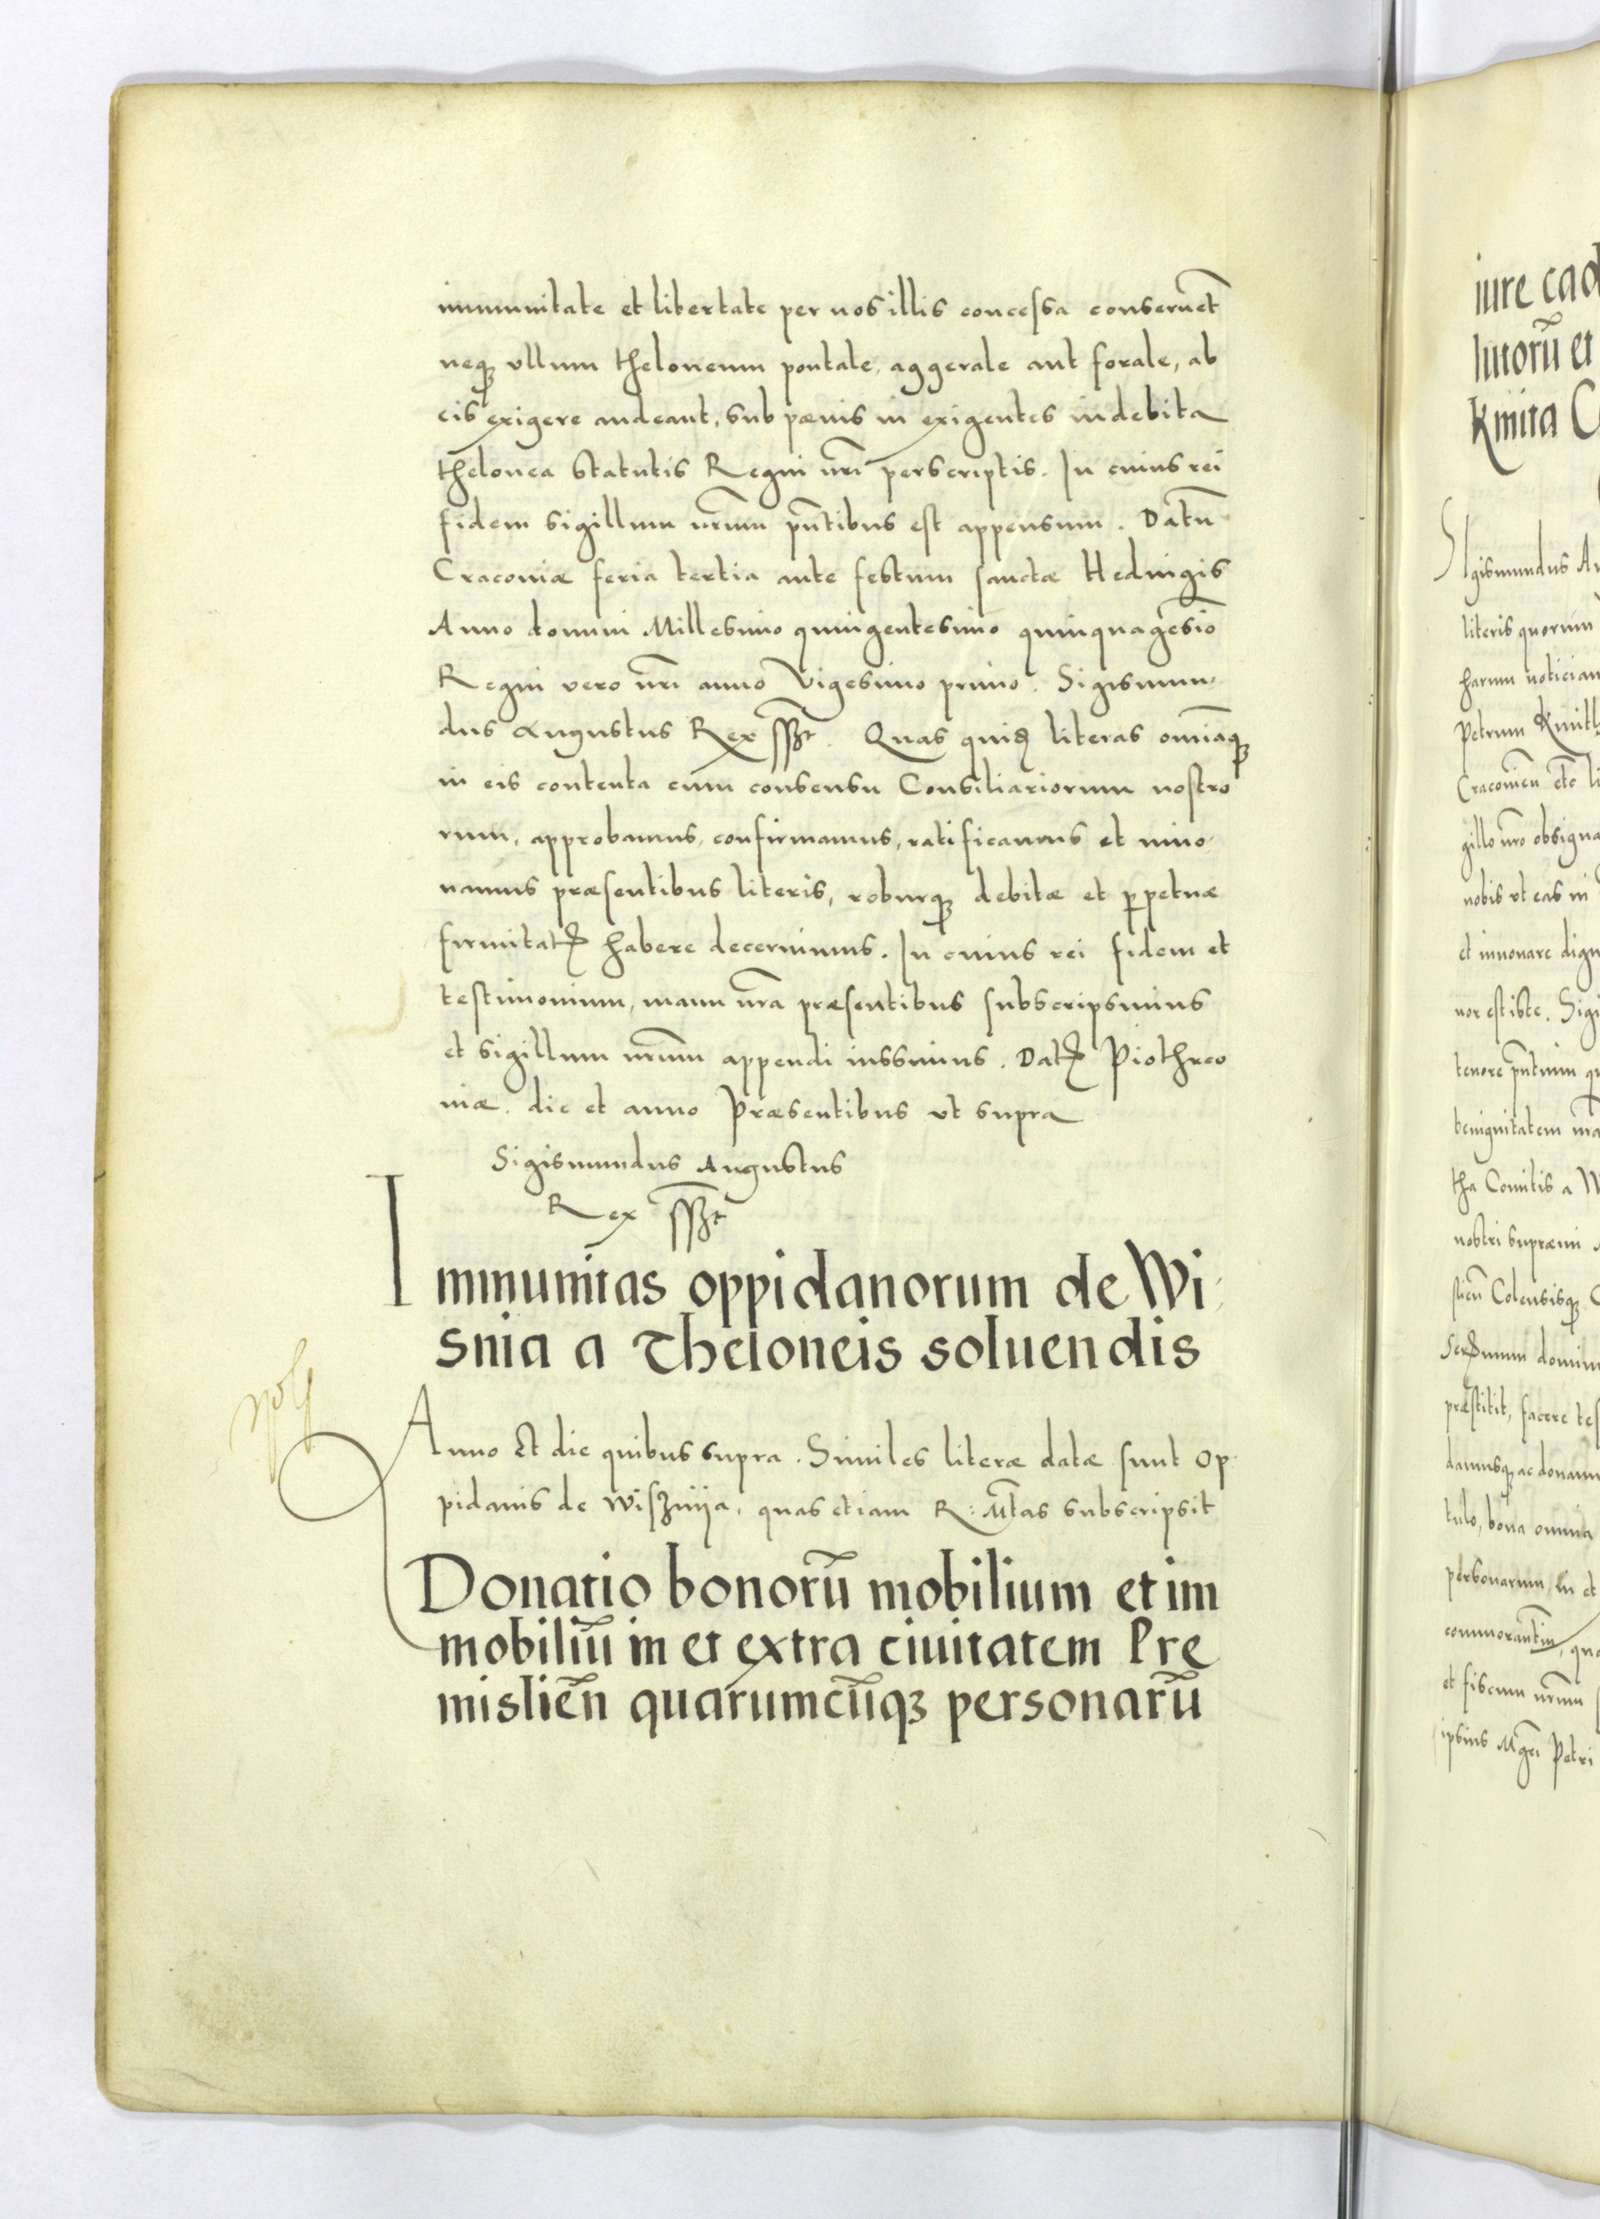 immunitate et libertate per nos illis concessa conseruēt
neqꝫ vllum theloneum pontale, aggerale aut forale, ab
eis exigere audeant, sub pœnis in exigentes indebita
thelonea statutis Regni nr̄i perscriptis. In cuius rei
fidem sigillum nr̄um pn̄tibus est appensum. Datū
Cracoviæ feria tertia ante festum sanctæ Heduigis
Anno domini Millesimo quingentesimo quinquagēsio
Regni vero nr̄i anno Vigesimo primo. Sigismun-
dus Augustus Rex sszt. Quas quidē literas omīaqꝫ
in eis contenta cum consensu Consiliariorum nostro
rum, approbamus, confirmamus, ratificamus et inno-
uamus præsentibus literis, roburqꝫ debitæ et ꝑpetuæ
firmitatꝭ habere decernimus. In cuius rei fidem et
testimonium, manu nr̄a præsentibus subscripsimus
et sigillum nr̄um appendi iussimus. Datꝭ Piothrco
uiæ. die et anno Præsentibus vt supra
Sigismundus Augustus
Rex sszt
Immunitas oppidanorum de Wi-
snia a Theloneis soluendis
Anno Et die quibus supra. Similes literæ datæ sunt Op-
pidanis de Wiſznija, quas etiam R: Mt̄as subscripsit
Donatio bonorū mobilium et im
mobiliū in et extra ciuitatem Pre
misliēn quarumcūqꝫ personarū
iure cad
lutorū et
Kmita C
Sigismundus Au
literis quorum
harum noticiam
Petrum Kmith
Cracovien̄ etc̄ li
gillo nr̄o obsigna
nobis vt eas in
et innouare dign
nor est iste. Sigi
tenore pn̄tium qu
benignitatem nr̄a
tha Comitis a W
nostri supræmi
sticn̄ Colensisqꝫ C
domin
præstitit, facere tes
damusqꝫ ac donam
tulo, bona omnia
personarum, in et
commorantīu, qua
et fiscum nr̄um
ipsius Mgc̄i Petri